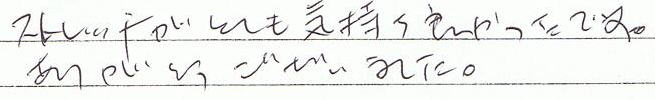 ストレッチがとても気持ちよかったです。
ありがとうございました。